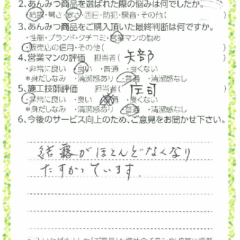 2.あんみつ商品を選ばれた際の悩みは何でしたか。
結露・暑さ・寒さ・西日・防犯・騒音・その他(
3.あんみつ商品をご購入頂いた最終判断は何ですか。
・性能・ブランド・クチコミ・営業マンの勧め
・販売店の信用・その他(
4.営業マンの評価 担当者(矢部
・非常に良い・良い・普通・良くない
※身だしなみ・清潔感あり・清潔感なし
5.施工技師評価 担当者(
・非常に良い・良い・普通・良くない
※身だしなみ・清潔感あり・清潔感なし
6.今後のサービス向上のため、ご意見をお聞かせ下さい。
結露がほとんどなくなり
たすかっています。